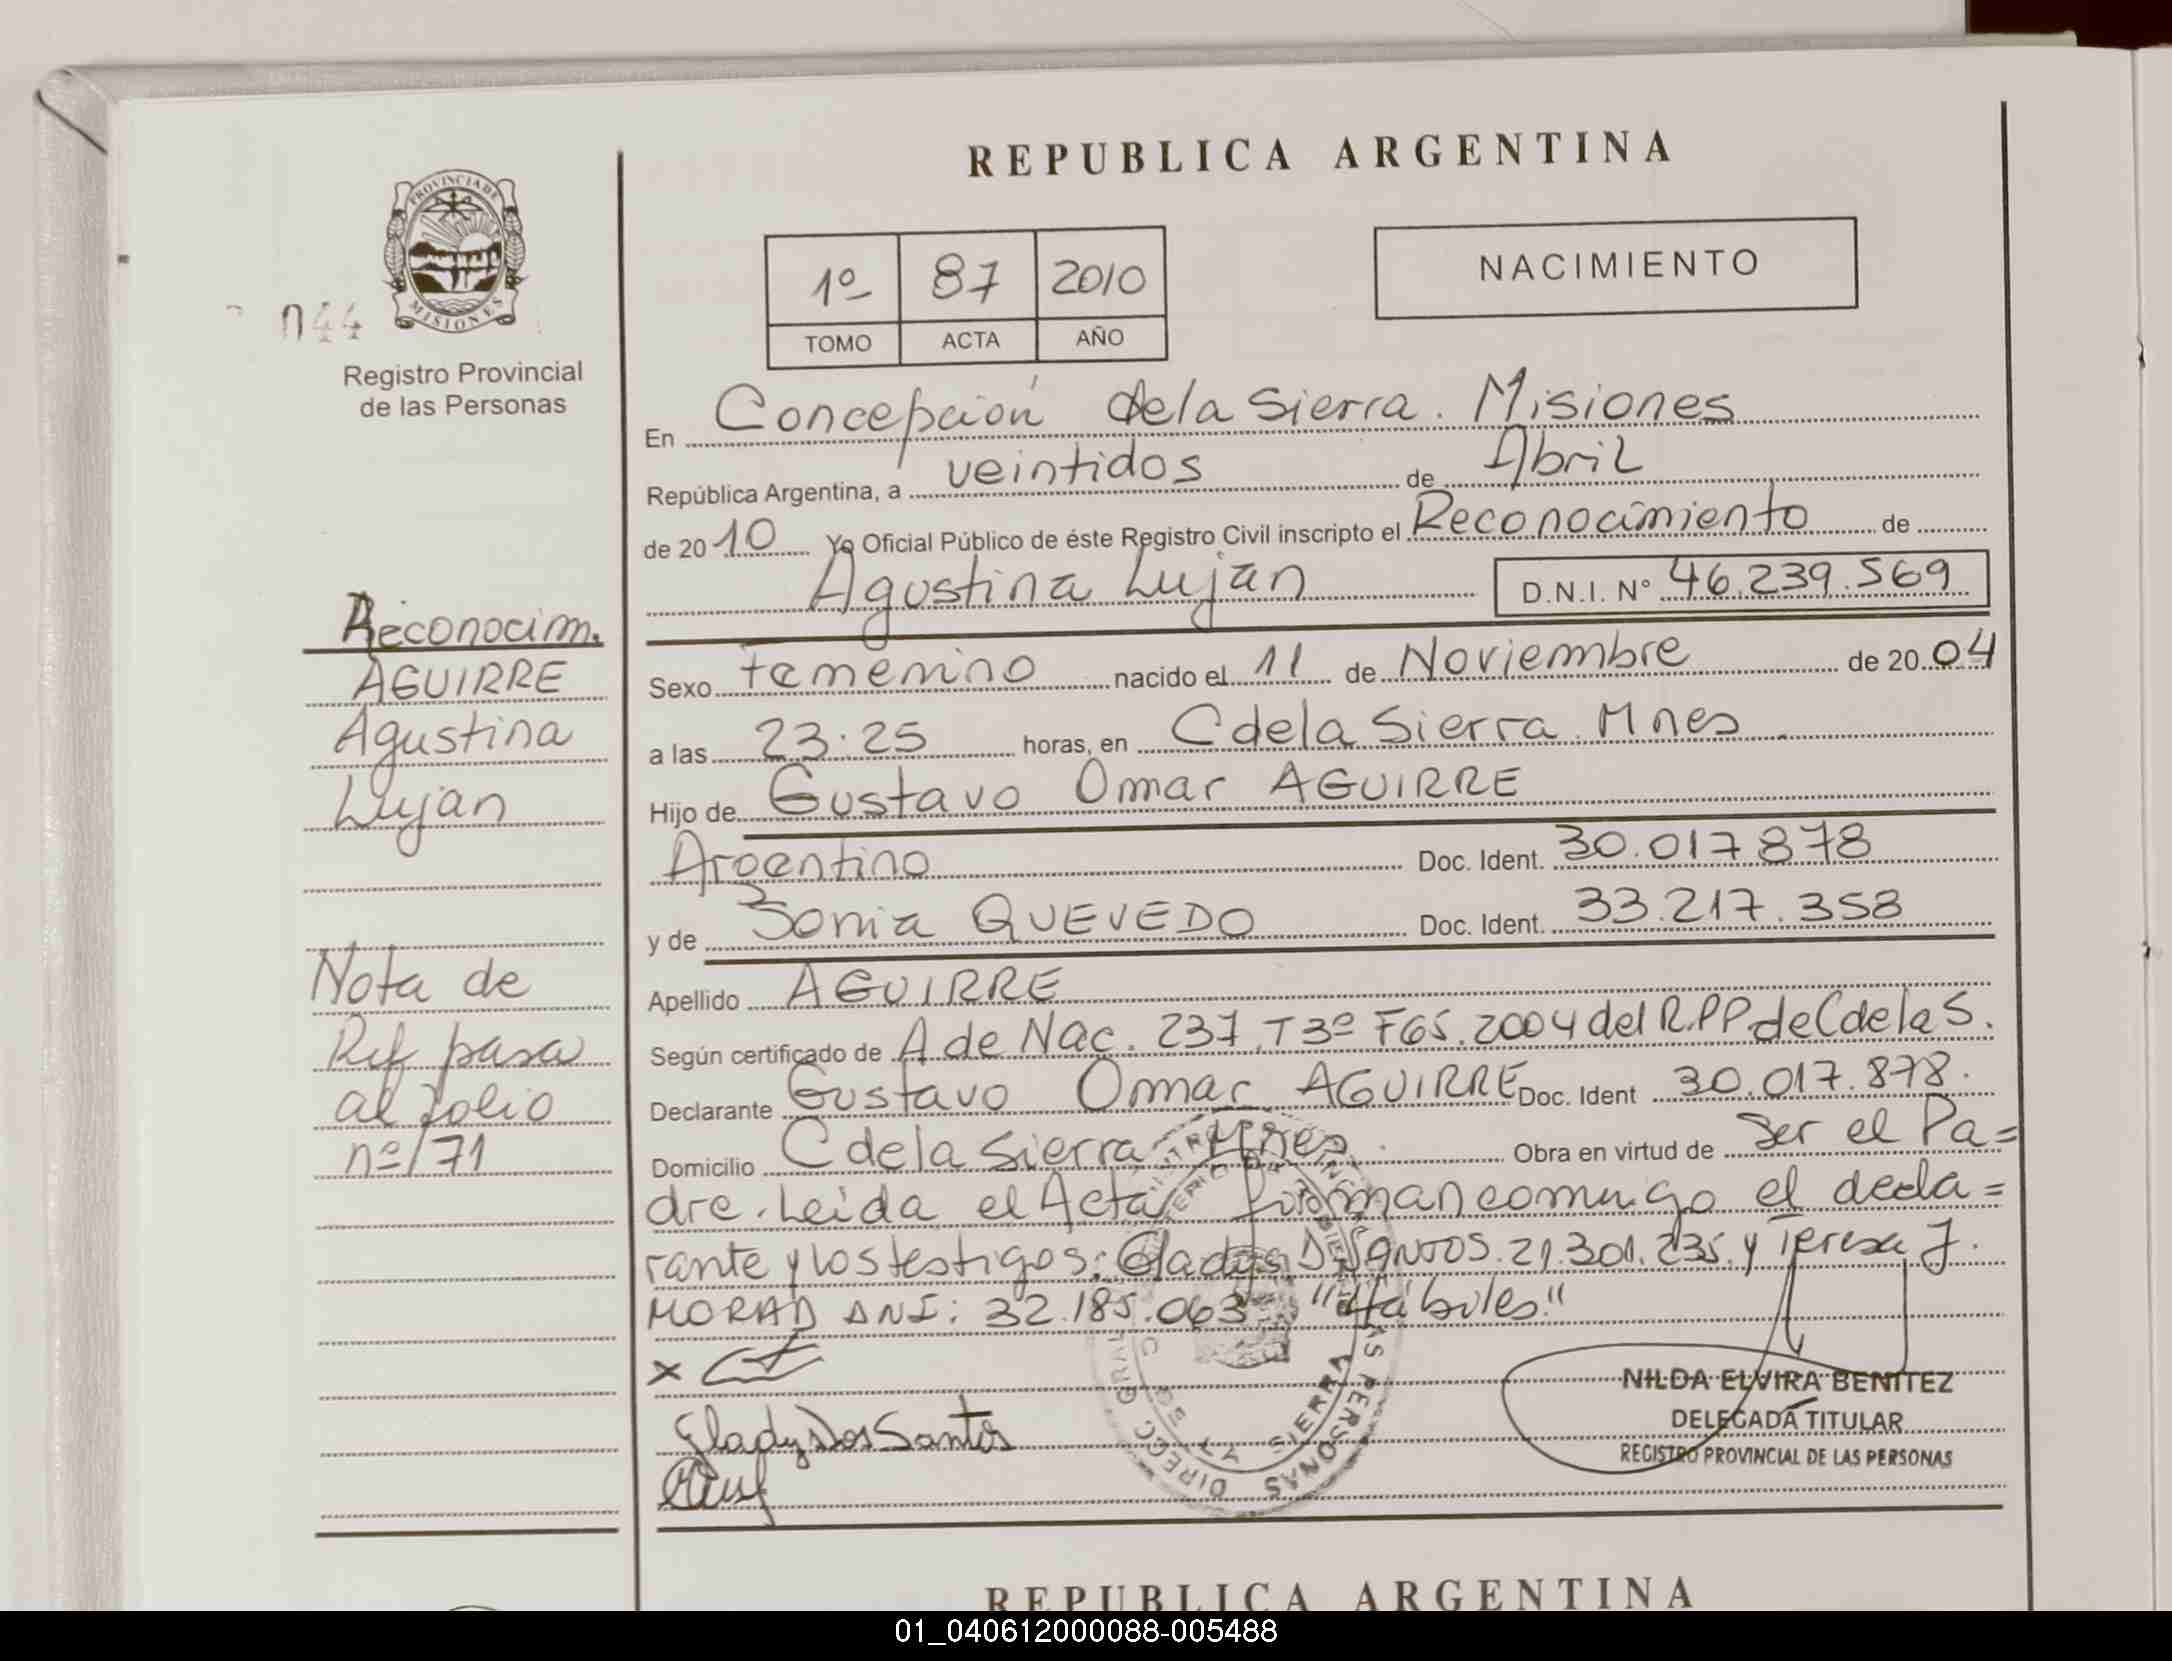 REPUBLICA ARGENTINA
PROVINCIA DE
MISIONES
044
Registro Provincial
de las Personas
1º 87 2010
TOMO ACTA AÑO
NACIMIENTO
En Concepción de la Sierra. Misiones
República Argentina, a veintidos de Abril
de 2010 Yo Oficial Público de éste Registro Civil inscripto el Reconocimiento de
Agustina Luján D.N.I. Nº 46.239.569
Sexo Femenino nacido el 11 de Noviembre de 2004
a las 23.25 horas, en C de la Sierra. Mnes
Hijo de Gustavo Omar AGUIRRE
Argentino Doc. Ident. 30.017.878
y de Sonia QUEVEDO Doc. Ident. 33.217.358
Apellido AGUIRRE
Según certificado de A de Nac. 237, T3º F65. 2004 del R.P.P de C de la S.
Declarante Gustavo Omar AGUIRRE Doc. Ident 30.017.878.
Domicilio C de la Sierra Mnes. Obra en virtud de Ser el Pa=
dre. Leida el Acta firman comigo el decla=
rante y los testigos: Gladys D SANTOS. 21.301.235. y Teresa J.
MORAD DNI: 32.185.063 "Hábiles"
x
Gladys Dos Santos
NILDA ELVIRA BENITEZ
DELEGADA TITULAR
REGISTRO PROVINCIAL DE LAS PERSONAS
Reconocim.
AGUIRRE
Agustina
Luján
Nota de
Ref pasa
al folio
nº 171
REPUBLICA ARGENTINA
01_040612000088-005488